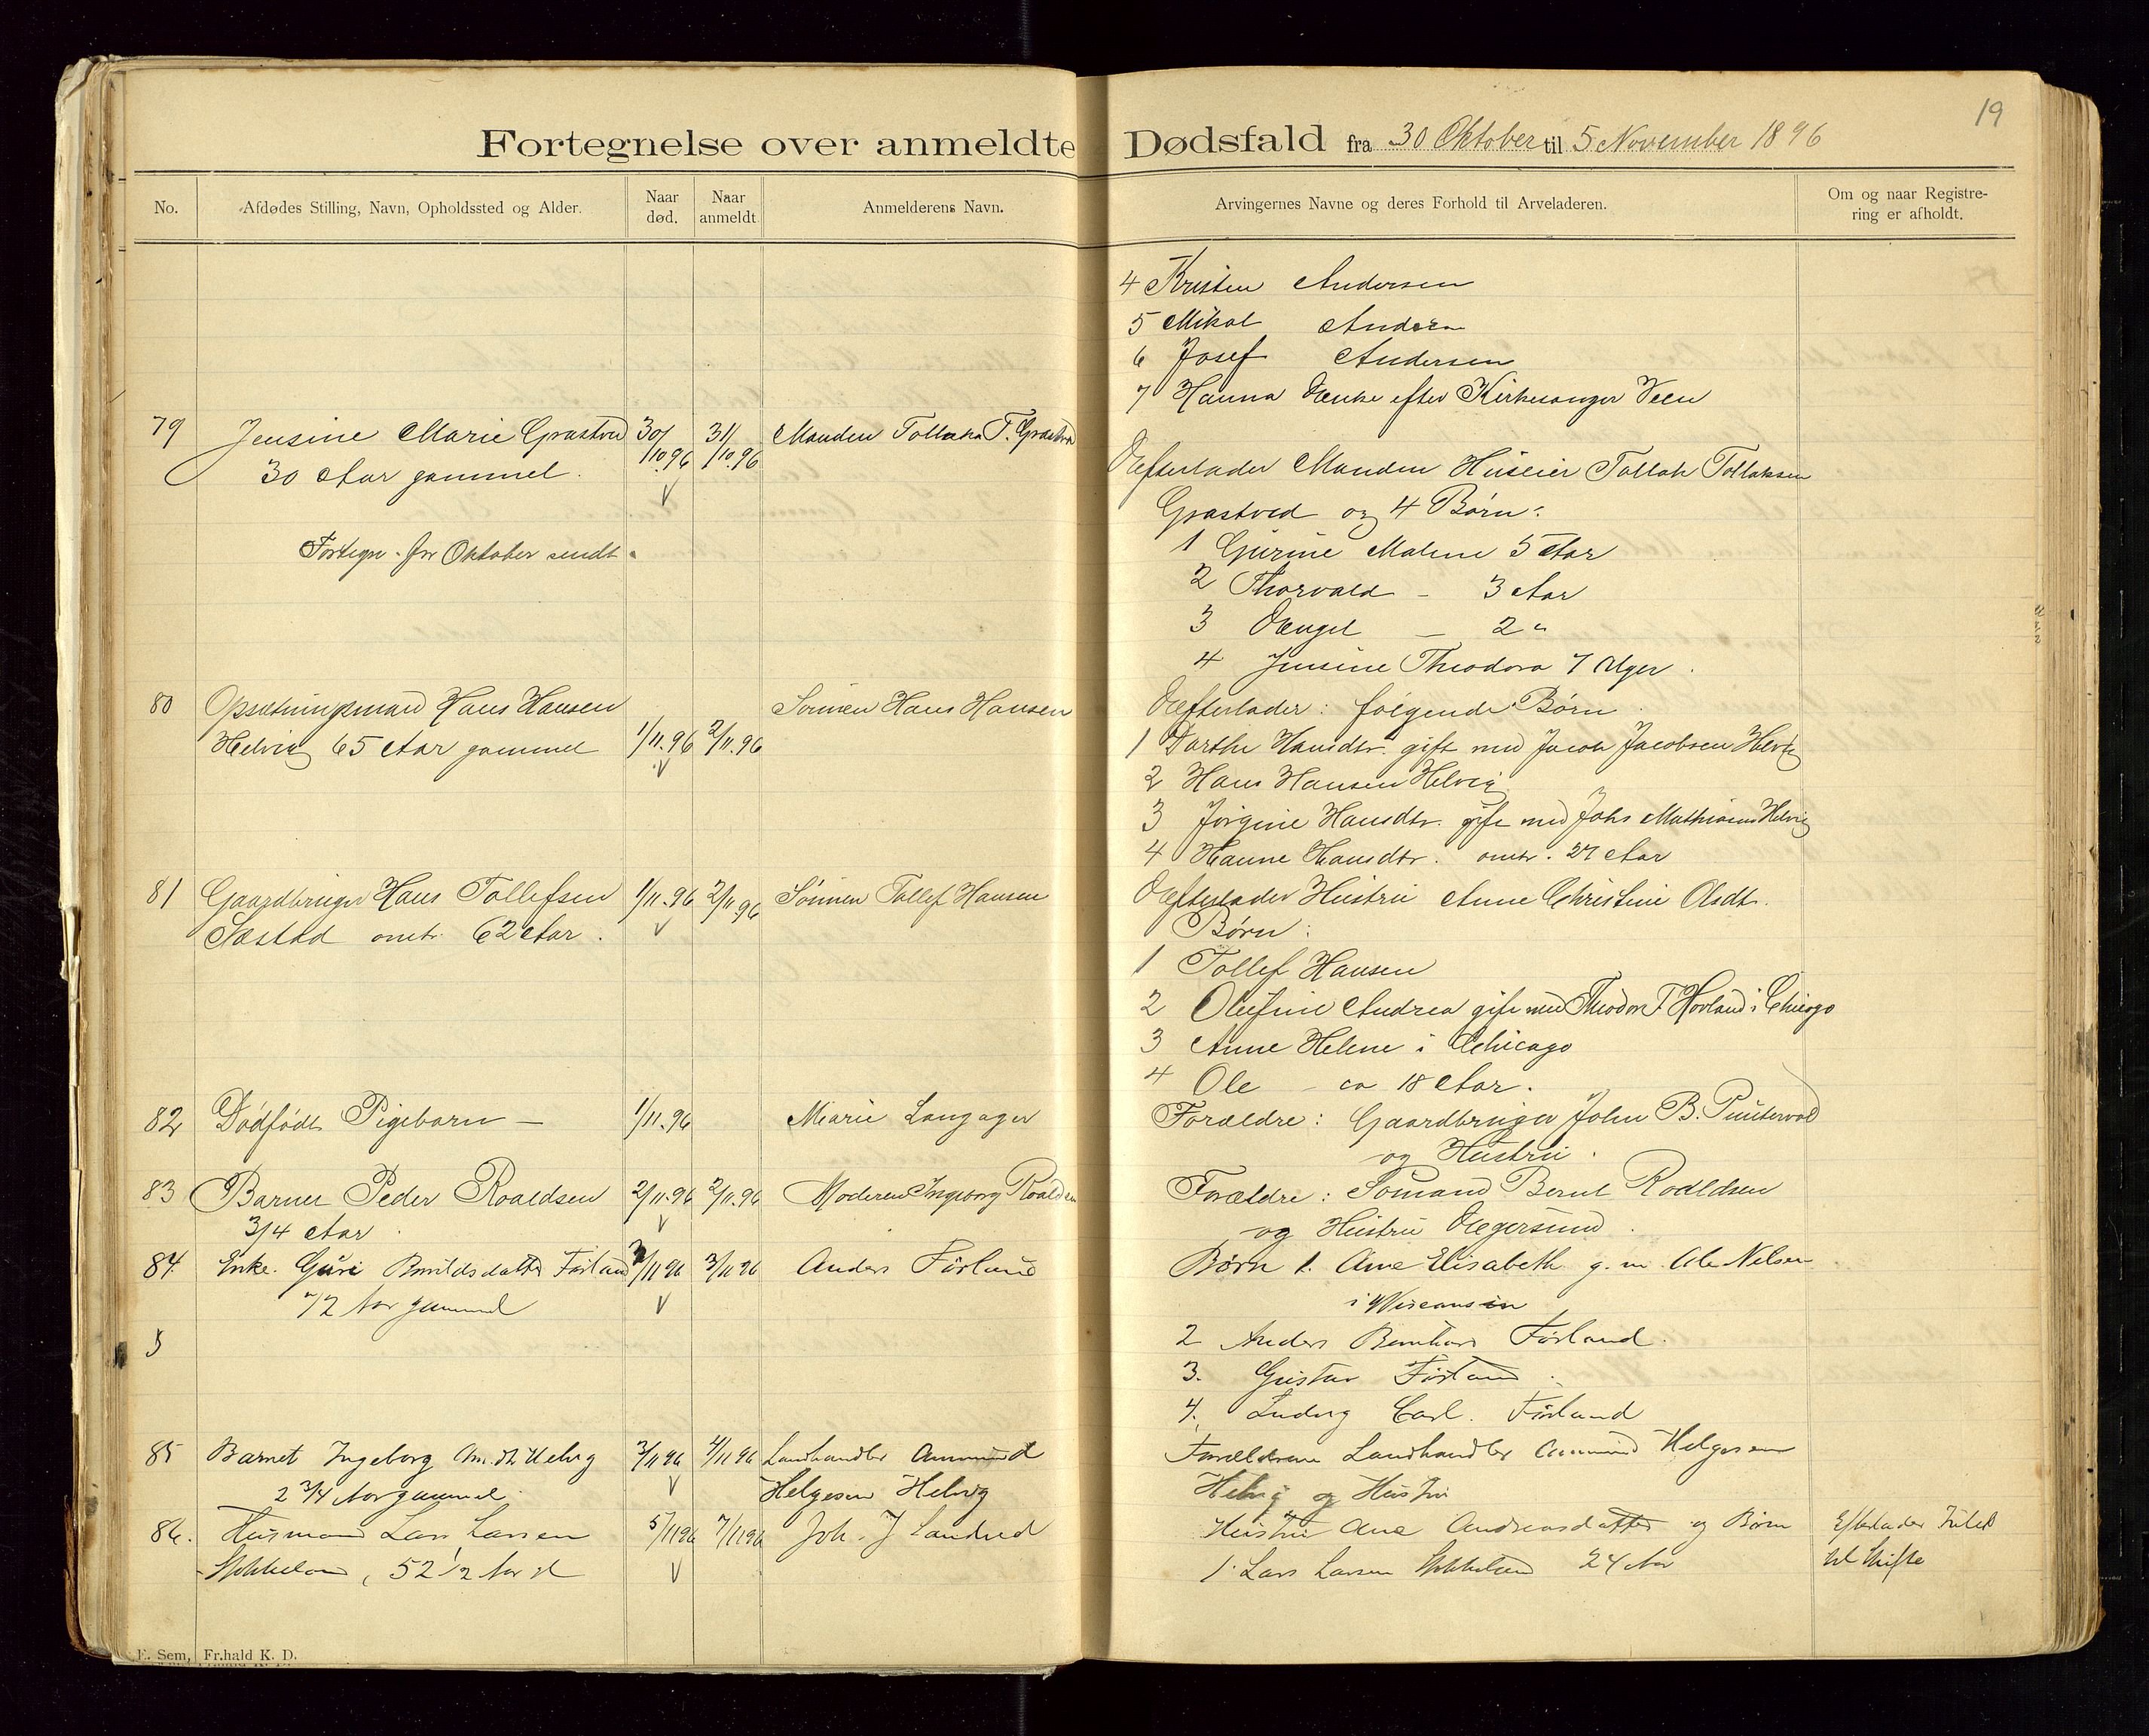 19
Fortegnelse over anmeldte Dødsfald fra 30 Oktober til 5 November 1896
No.
Afdødes Stilling, Navn, Opholdssted og Alder.
Naar død.
Naar anmeldt.
Anmelderens Navn.
Arvingernes Navne og deres Forhold til Arveladeren.
Om og naar Registre-
ring er afholdt.
4 Kristen Andersen
5 Mikal Andersen
6 Josef Andersen
7 Hanna Enke efter Kirkesanger Veen
79 Jensine Marie Grastved 30/10.96 31/10.96 Manden Tollak T. Grastved
30 Aar gammel.
Efterlader Manden Huseier Tollak Tollaksen
Grastved og 4 Børn:
1 Gurine Malene 5 Aar
2 Thorvald - 3 Aar
3 Engel - 2 "
4 Jensine Theodora 7 Uger.
Fortegn. for Oktober sendt.
80 Opsætningsmand Hans Hansen Sønnen Hans Hansen
Helvig 65 Aar gammel 1/11.96 2/11.96
Efterlader: følgende Børn
1 Dorthe Hansdtr. gift med Jacob Jacobsen Helvig
2 Hans Hansen Helvig
3 Jørgine Hansdtr. gift med Johs Mathiasen Helvig
4 Hanne Hansdtr. omtr. 27 Aar
81 Gaardbruger Hans Tollefsen 1/11.96 2/11.96 Sønnen Tollef Hansen
Sæstad omtr. 62 Aar.
Efterlader Hustru Anne Christine Olsdt.
Børn:
1 Tollef Hansen
2 Olufine Andrea gift med Theodor T. Hovland i Chicago
3 Anne Helene i Chicago
4 Ole - ca 18 Aar.
82 Dødfødt Pigebarn - 1/11.96 Marie Langager
Forældre: Gaardbruger John B. Puntervold
og Hustru.
83 Barnet Peder Roaldsen 2/11.96 2/11.96 Moderen Ingeborg Roaldsen
3/4 Aar.
Forældre: Sømand Bernt Roaldsen
og Hustru Egersund.
84. Enke. Guri Bernildsdatter Førland 3/11 96 3/11 96 Anders Førland
72 Aar gammel
Børn 1. Ane Elisabeth g. m. Ole Nelsen
i Wisconsin
2 Anders Bernhard Førland.
3. Gustav Førland.
4. Ludvig Carl. Førland
85 Barnet Ingeborg Am.dt. Helvig 3/11 96 4/11 96 Landhandler Ammund
2 3/4 Aar gammel. Helgesen Helvig
Forældrene Landhandler Ammund Helgesen
Helvig og Hustru
86. Husmand Lars Larsen 5/11 96 7/11 96 Joh. J Sandved
52 1/2 Aar gl
Hustru Ane Andreasdatter og Børn
1. Lars Larsen 24 Aar
Efterlader Intet
til Skifte
F. Sem, Fr.hald K. D.